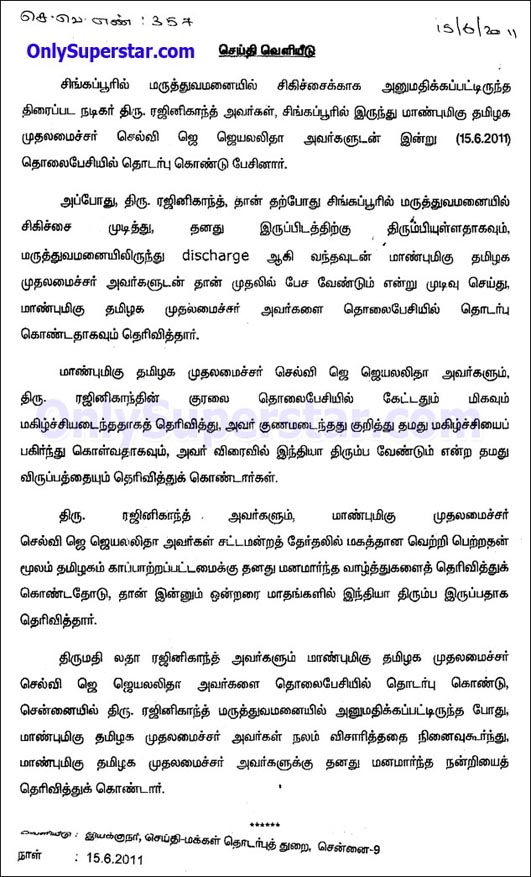 செ.வெ.எண் : 357
15/6/2011
OnlySuperstar.com
செய்தி வெளியீடு
சிங்கப்பூரில் மருத்துவமனையில் சிகிச்சைக்காக அனுமதிக்கப்பட்டிருந்த
திரைப்பட நடிகர் திரு. ரஜினிகாந்த் அவர்கள், சிங்கப்பூரில் இருந்து மாண்புமிகு தமிழக
முதலமைச்சர் செல்வி ஜெ ஜெயலலிதா அவர்களுடன் இன்று (15.6.2011)
தொலைபேசியில் தொடர்பு கொண்டு பேசினார்.
அப்போது, திரு. ரஜினிகாந்த், தான் தற்போது சிங்கப்பூரில் மருத்துவமனையில்
சிகிச்சை முடித்து, தனது இருப்பிடத்திற்கு திரும்பியுள்ளதாகவும்,
மருத்துவமனையிலிருந்து discharge ஆகி வந்தவுடன் மாண்புமிகு தமிழக
முதலமைச்சர் அவர்களுடன் தான் முதலில் பேச வேண்டும் என்று முடிவு செய்து,
மாண்புமிகு தமிழக முதலமைச்சர் அவர்களை தொலைபேசியில் தொடர்பு
கொண்டதாகவும் தெரிவித்தார்.
மாண்புமிகு தமிழக முதலமைச்சர் செல்வி ஜெ ஜெயலலிதா அவர்களும்,
திரு. ரஜினிகாந்தின் குரலை தொலைபேசியில் கேட்டதும் மிகவும்
மகிழ்ச்சியடைந்ததாகத் தெரிவித்து, அவர் குணமடைந்தது குறித்து தமது மகிழ்ச்சியைப்
OnlySuperstar.com
பகிர்ந்து கொள்வதாகவும், அவர் விரைவில் இந்தியா திரும்ப வேண்டும் என்ற தமது
விருப்பத்தையும் தெரிவித்துக் கொண்டார்கள்.
திரு. ரஜினிகாந்த் அவர்களும், மாண்புமிகு முதலமைச்சர்
செல்வி ஜெ ஜெயலலிதா அவர்கள் சட்டமன்றத் தேர்தலில் மகத்தான வெற்றி பெற்றதன்
மூலம் தமிழகம் காப்பாற்றப்பட்டமைக்கு தனது மனமார்ந்த வாழ்த்துகளைத் தெரிவித்துக்
கொண்டதோடு, தான் இன்னும் ஒன்றரை மாதங்களில் இந்தியா திரும்ப இருப்பதாக
தெரிவித்தார்.
திருமதி லதா ரஜினிகாந்த் அவர்களும் மாண்புமிகு தமிழக முதலமைச்சர்
செல்வி ஜெ ஜெயலலிதா அவர்களை தொலைபேசியில் தொடர்பு கொண்டு,
சென்னையில் திரு. ரஜினிகாந்த் மருத்துவமனையில் அனுமதிக்கப்பட்டிருந்த போது,
மாண்புமிகு தமிழக முதலமைச்சர் அவர்கள் நலம் விசாரித்ததை நினைவுகூர்ந்து,
மாண்புமிகு தமிழக முதலமைச்சர் அவர்களுக்கு தனது மனமார்ந்த நன்றியைத்
தெரிவித்துக் கொண்டார்.
******
வெளியீடு : இயக்குநர், செய்தி-மக்கள் தொடர்புத் துறை, சென்னை-9
நாள் : 15.6.2011